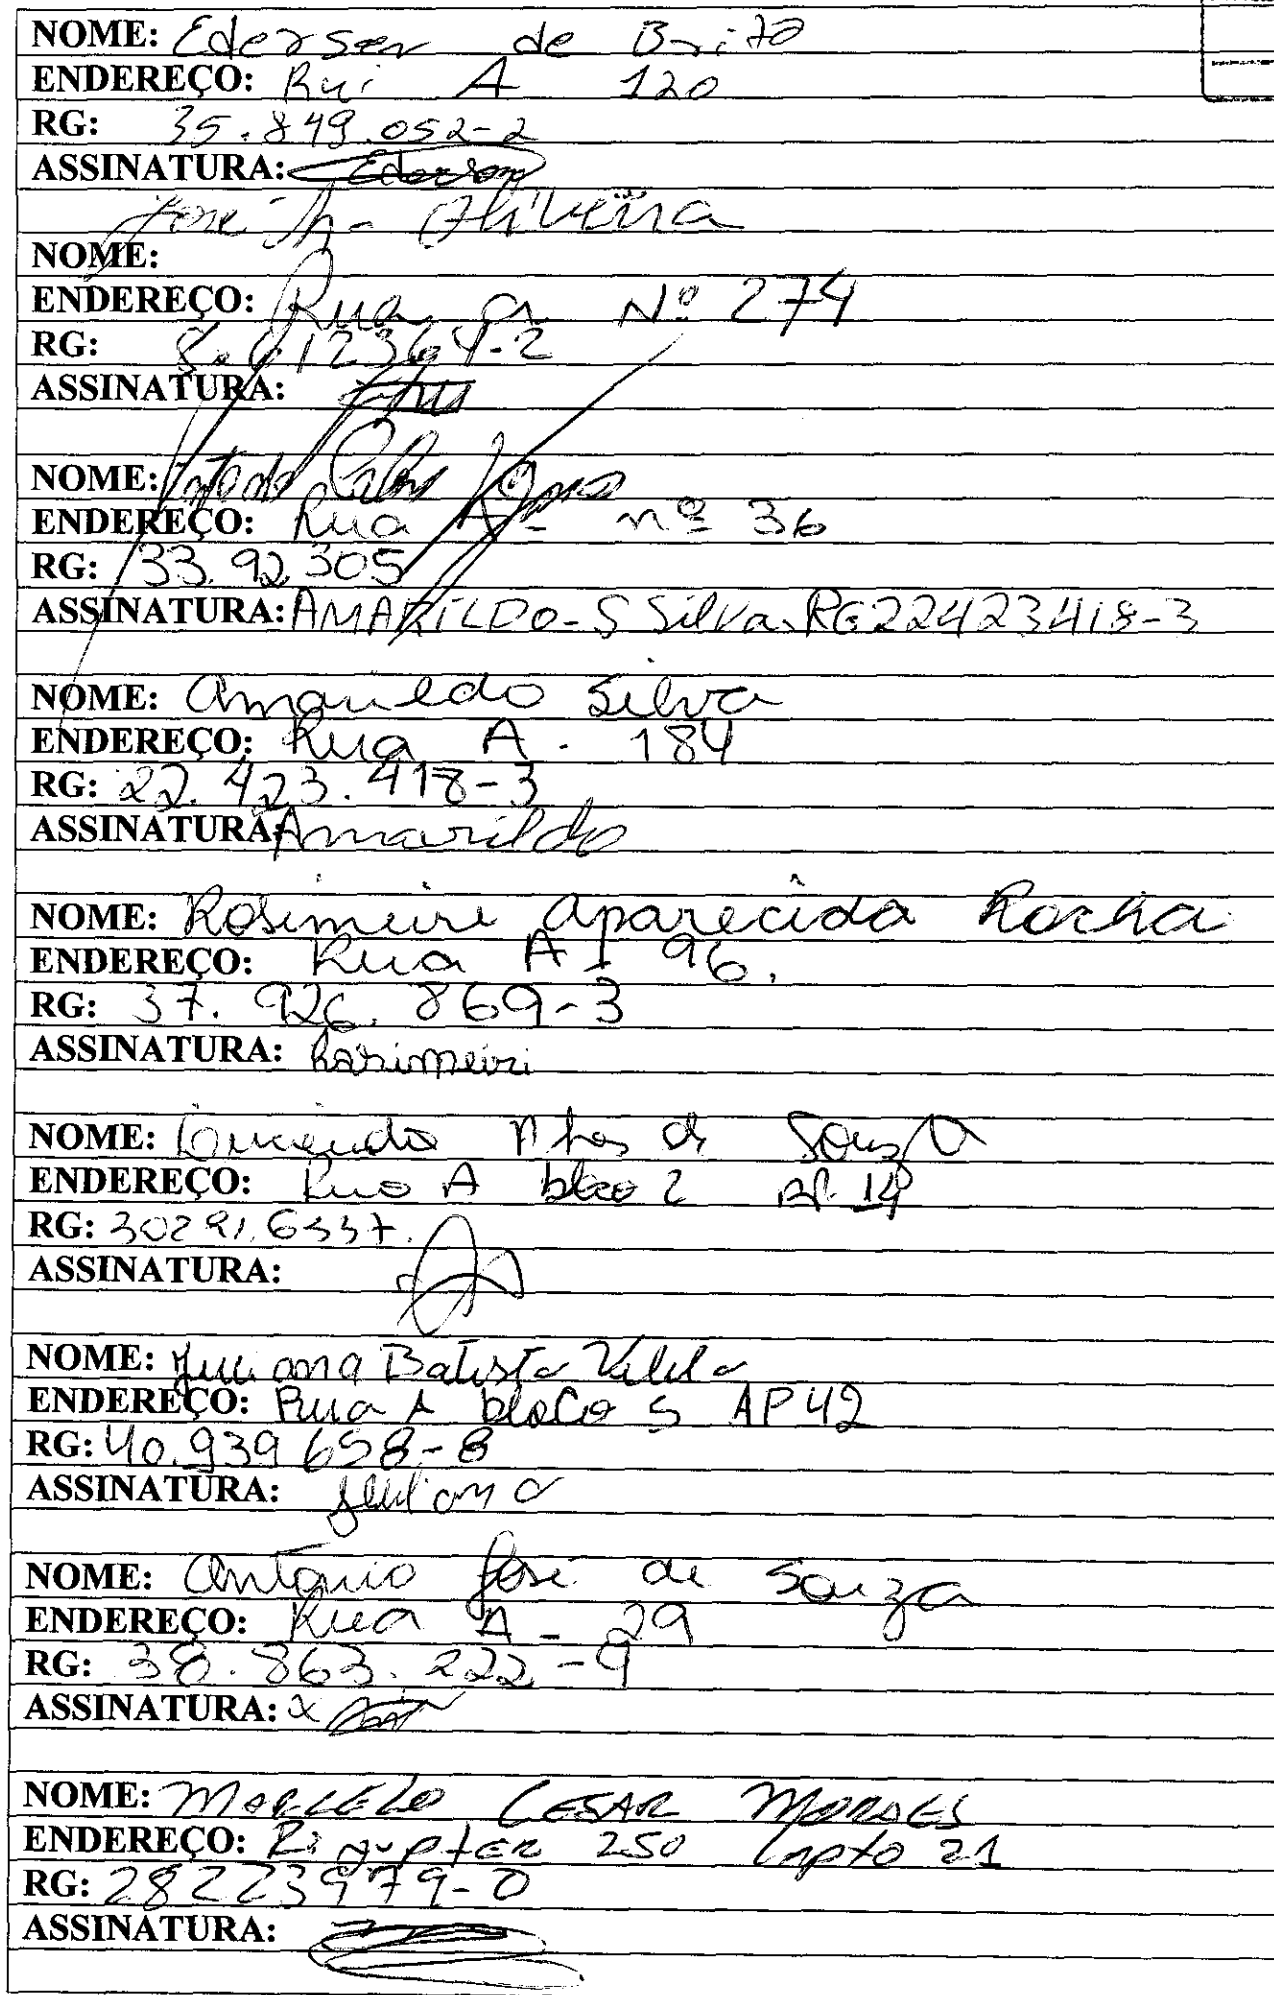 NOME: Ederson de Brito
ENDEREÇO: Rui A 120
RG: 35.849.052-2
ASSINATURA: Ederson
José Oliveira
NOME:
ENDEREÇO: Rua a Nº 274
RG: 12364-2
ASSINATURA:
NOME: Carlos
ENDEREÇO: Rua A - nº 36
RG: 33.92.305
ASSINATURA: AMARILDO-S Silva RG22423418-3
NOME: Amarildo Silva
ENDEREÇO: Rua A. 184
RG: 22.423.418-3
ASSINATURA: Amarildo
NOME: Rosimeire Aparecida Rocha
ENDEREÇO: Rua A 96.
RG: 37.926.869-3
ASSINATURA: Rosimeiri
NOME: de Souza
ENDEREÇO: Rua A bloco 2 AP. 14
RG: 30291.6337.
ASSINATURA:
NOME: Juliana Batista
ENDEREÇO: Rua A bloco 5 AP 42
RG: 40.939 658-8
ASSINATURA: Juliana
NOME: Antonio José de Souza
ENDEREÇO: Rua A - 29
RG: 38.863.222-9
ASSINATURA: x
NOME: MARCELO CESAR MORAES
ENDEREÇO: R: Jupiter 250 Apto 21
RG: 28223979-0
ASSINATURA: